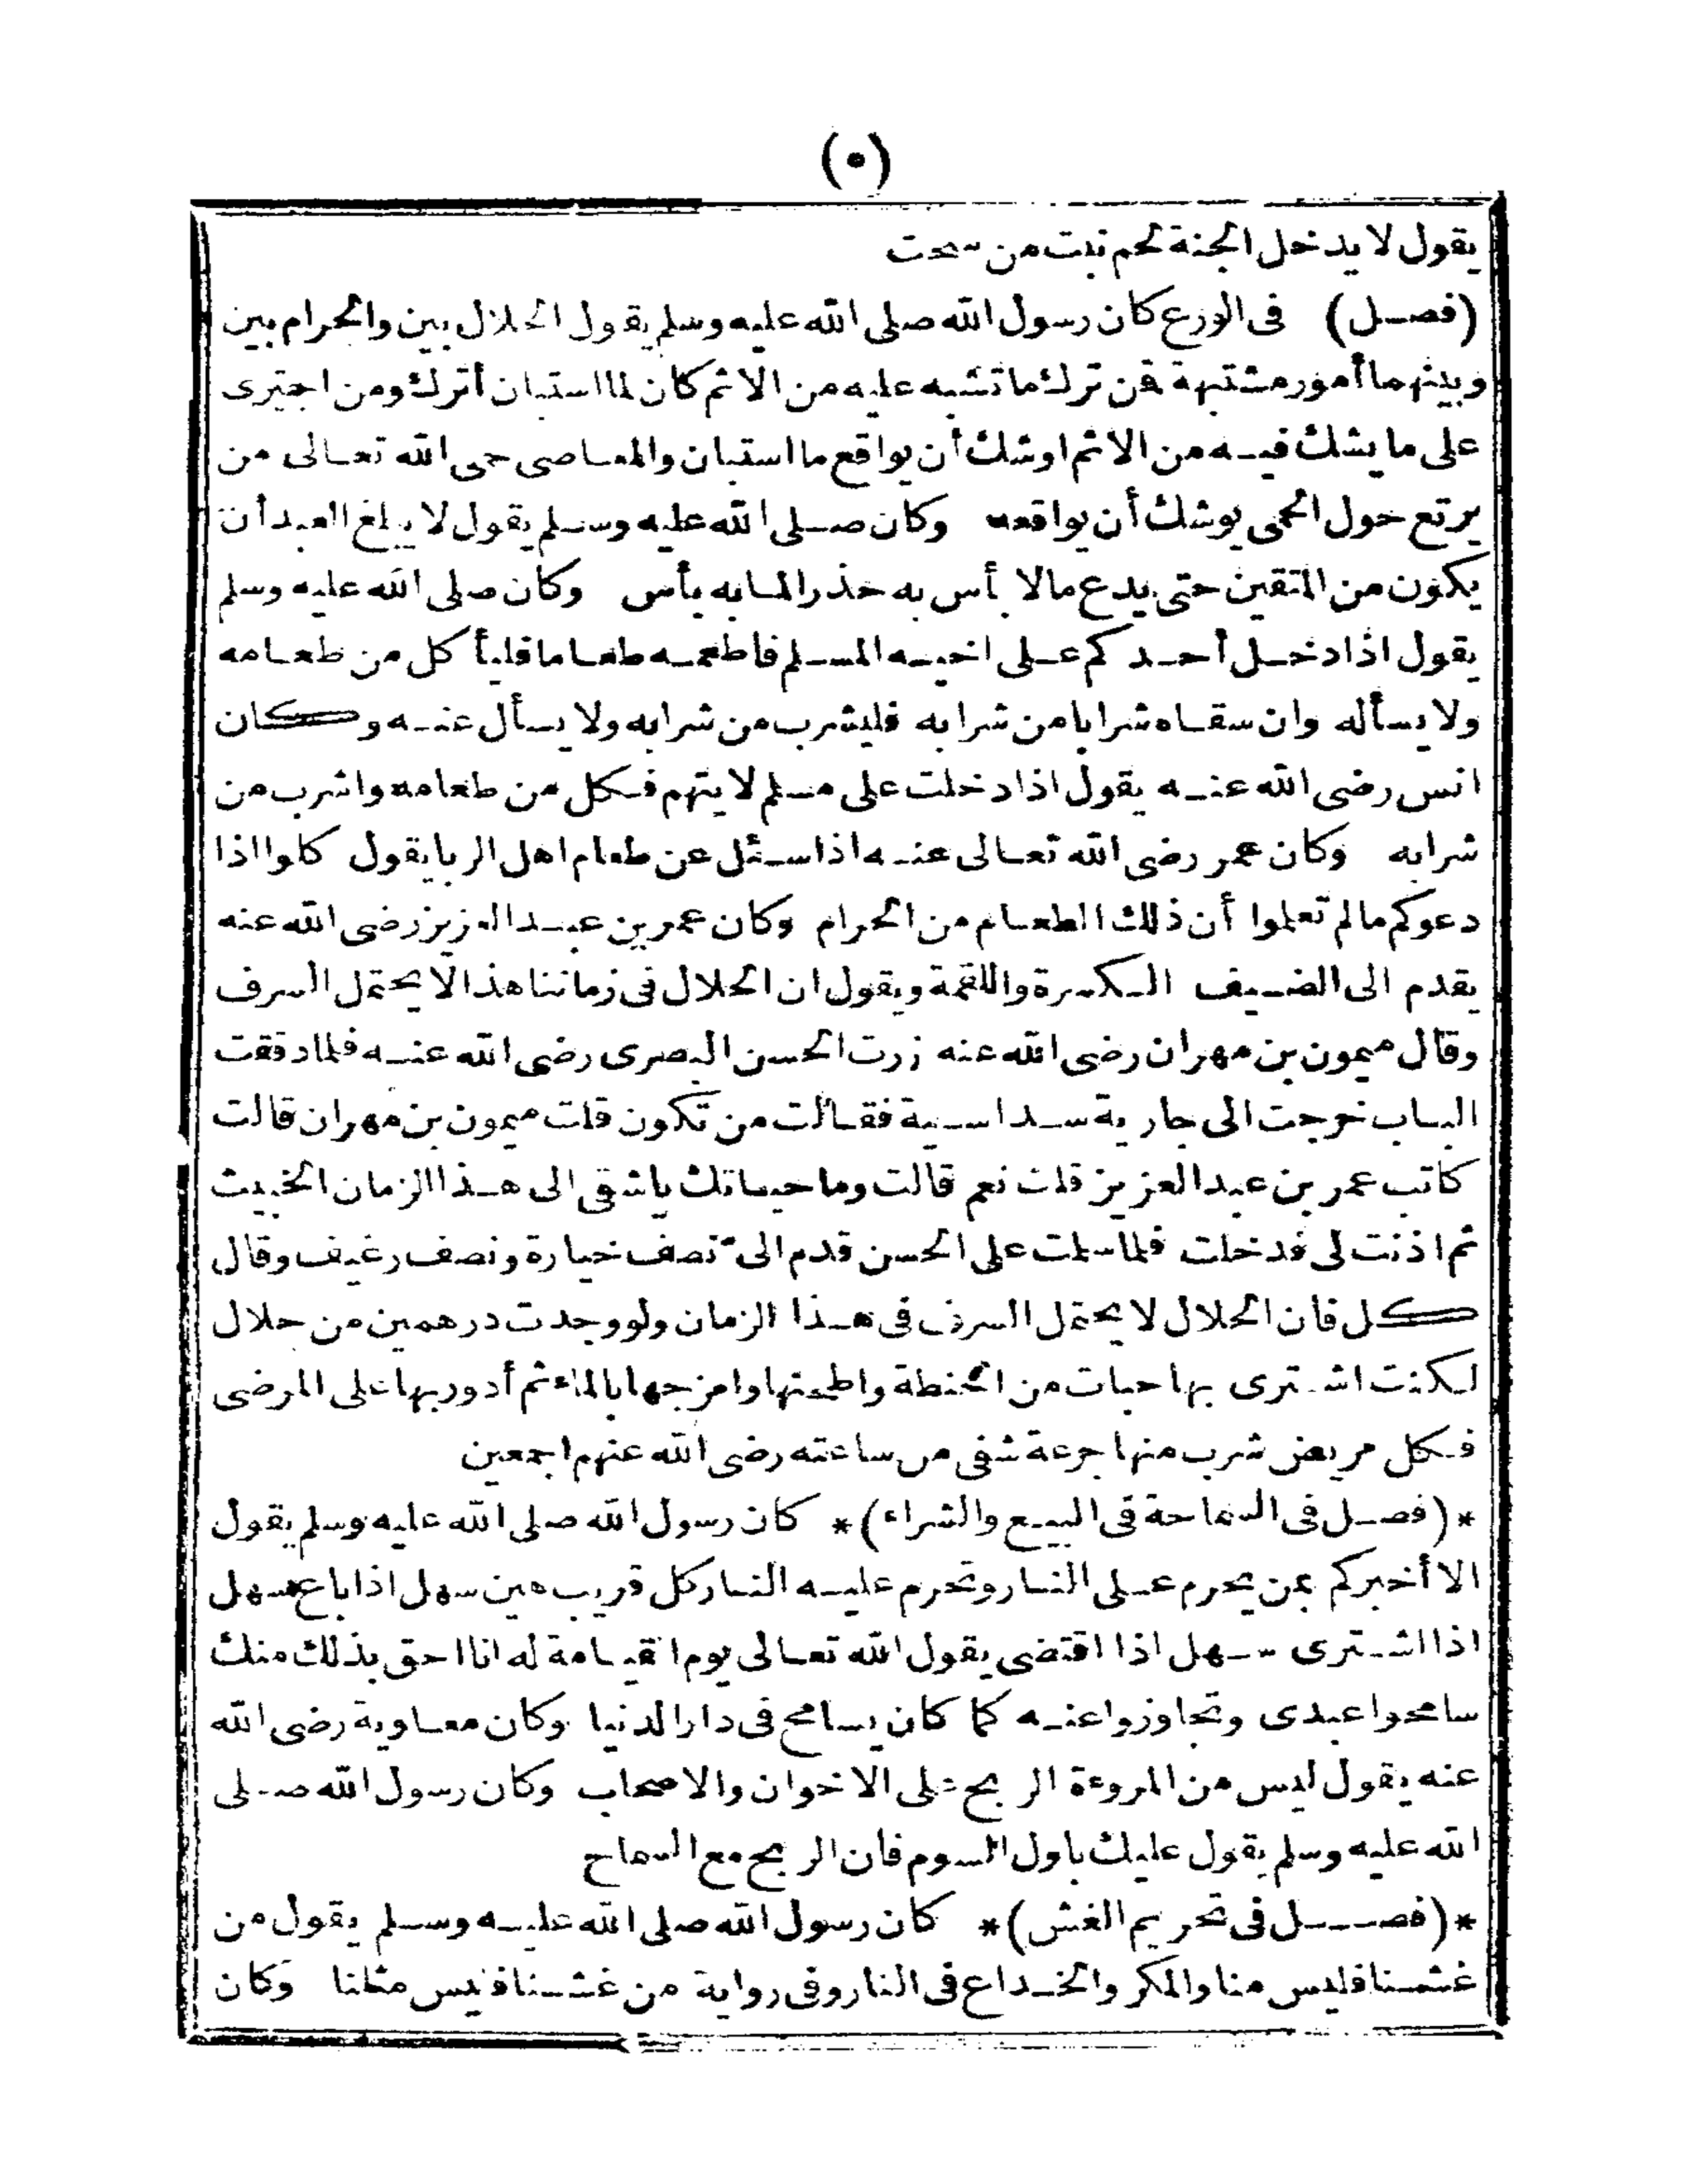 (٥)
يقول لا يدخل الجنة لحم نبت من سحت
(فصل) فى الورع كان رسول الله صلى الله عليه وسلم يقول الحلال بين والحرام بين
وبينهما أمور مشتبهة فمن ترك ما تشبه عليه من الاثم كان لما استبان أترك ومن اجترى
على ما يشك فيه من الاثم اوشك أن يواقع ما استبان والمعاصى حمى الله تعالى من
يرتع حول الحمى يوشك أن يواقعه وكان صلى الله عليه وسلم يقول لا يبلغ العبد أن
يكون من المتقين حتى يدع مالا بأس به حذرا لما به بأس وكان صلى الله عليه وسلم
يقول اذا دخل أحدكم على اخيه المسلم فاطعمه طعاما فليأ كل من طعامه
ولا يسأله وان سقاه شرابا من شرابه فليشرب من شرابه ولا يسأل عنه وكان
انس رضى الله عنه يقول اذا دخلت على مسلم لا يتهم فكل من طعامه واشرب من
شرابه وكان عمر رضى الله تعالى عنه اذا سئل عن طعام اهل الربا يقول كلوا اذا
دعوكم مالم تعلموا أن ذلك الطعام من الحرام وكان عمر بن عبد العزيز رضى الله عنه
يقدم الى الضيف الكسرة واللقمة ويقول ان الحلال فى زماننا هذا لا يحتمل السرف
وقال ميمون بن مهران رضى الله عنه زرت الحسن البصرى رضى الله عنه فلما دققت
الباب خرجت الى جارية سداسية فقالت من تكون قلت ميمون بن مهران قالت
كاتب عمر بن عبد العزيز قلت نعم قالت وما حياتك ياشقى الى هذا الزمان الخبيث
ثم اذنت لى فدخلت فلما سلمت على الحسن قدم الى نصف خيارة ونصف رغيف وقال
كل فان الحلال لا يحتمل السرف فى هذا الزمان ولو وجدت درهمين من حلال
لكنت اشترى بها حبات من الحنطة واطحنها وامزجها بالماء ثم أدور بها على المرضى
فكل مريض شرب منها جرعة شفى من ساعته رضى الله عنهم اجمعين
*(فصل فى السماحة فى البيع والشراء)* كان رسول الله صلى الله عليه وسلم يقول
الا أخبركم بمن يحرم على النار وتحرم عليه النار كل قريب هين سهل اذا باع سهل
اذا اشترى سهل اذا اقتضى يقول الله تعالى يوم القيامة له انا احق بذلك منك
سامحوا عبدى وتجاوزوا عنه كما كان يسامح فى دار الدنيا وكان معاوية رضى الله
عنه يقول ليس من المروءة الربح على الاخوان والاصحاب وكان رسول الله صلى
الله عليه وسلم يقول عليك باول السوم فان الربح مع السماح
*(فصل فى تحريم الغش)* كان رسول الله صلى الله عليه وسلم يقول من
غشنا فليس منا والمكر والخداع فى النار وفى رواية من غشنا فليس مثلنا وكان